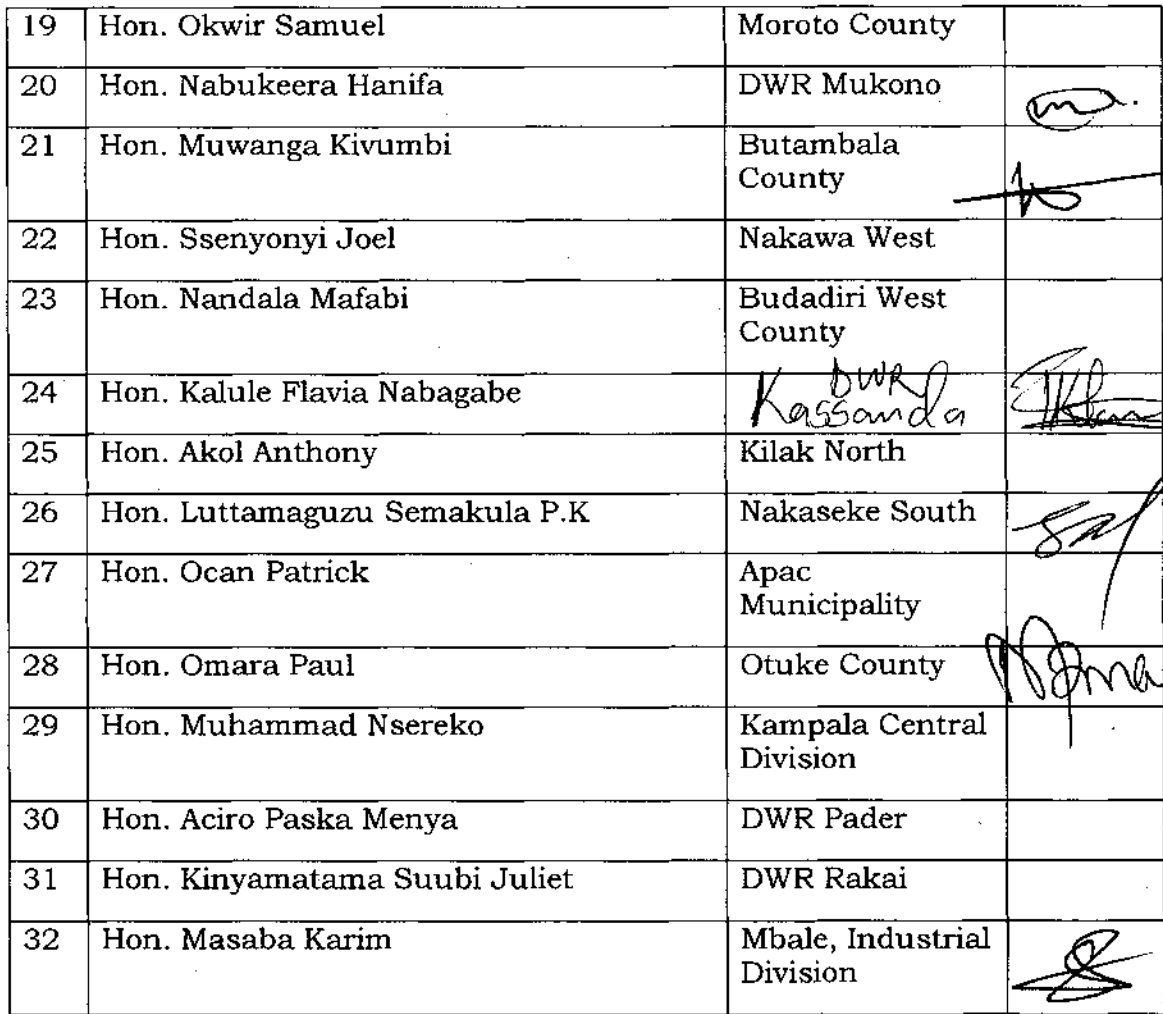 19 Hon. Okwir Samuel Moroto County
20 Hon. Nabukeera Hanifa DWR Mukono
21 Hon. Muwanga Kivumbi Butambala
County
22 Hon. Ssenyonyi Joel Nakawa West
23 Hon. Nandala Mafabi Budadiri West
County
24 Hon. Kalule Flavia Nabagabe DWR
Kassanda
25 Hon. Akol Anthony Kilak North
26 Hon. Luttamaguzu Semakula P.K Nakaseke South
27 Hon. Ocan Patrick Apac
Municipality
28 Hon. Omara Paul Otuke County
29 Hon. Muhammad Nsereko Kampala Central
Division
30 Hon. Aciro Paska Menya DWR Pader
31 Hon. Kinyamatama Suubi Juliet DWR Rakai
32 Hon. Masaba Karim Mbale, Industrial
Division